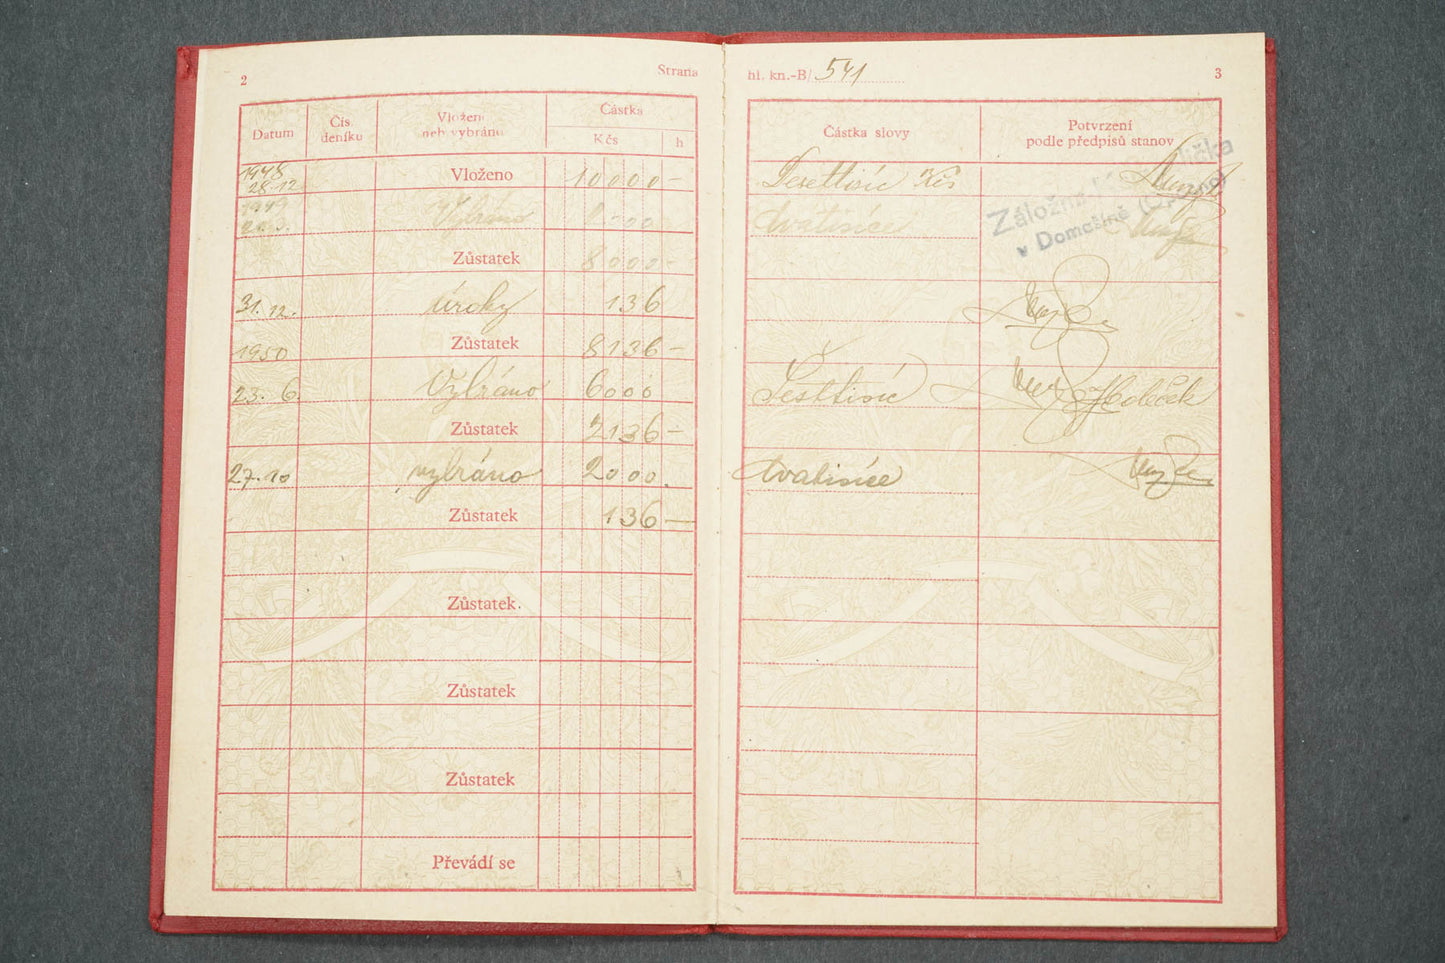 2
Strana
Datum
Čís. deníku
Vloženo neb vybráno
Částka
Kčs
h
1948
28.12
Vloženo
10000 –
1949
Vybráno
Zůstatek
8000 –
31. 12.
úroky
136
1950
Zůstatek
8136 –
23. 6.
Vybráno
6000
Zůstatek
2136 –
27. 10
vybráno
2000.
Zůstatek
136 —
Zůstatek.
Zůstatek
Zůstatek
Převádí se
hl. kn.-B/ 541
3
Částka slovy
Potvrzení
podle předpisů stanov
Desettisíc Kčs
Záložna
v Domašíně
dvatisíce
Šesttisíc
Holeček
dvatisíce